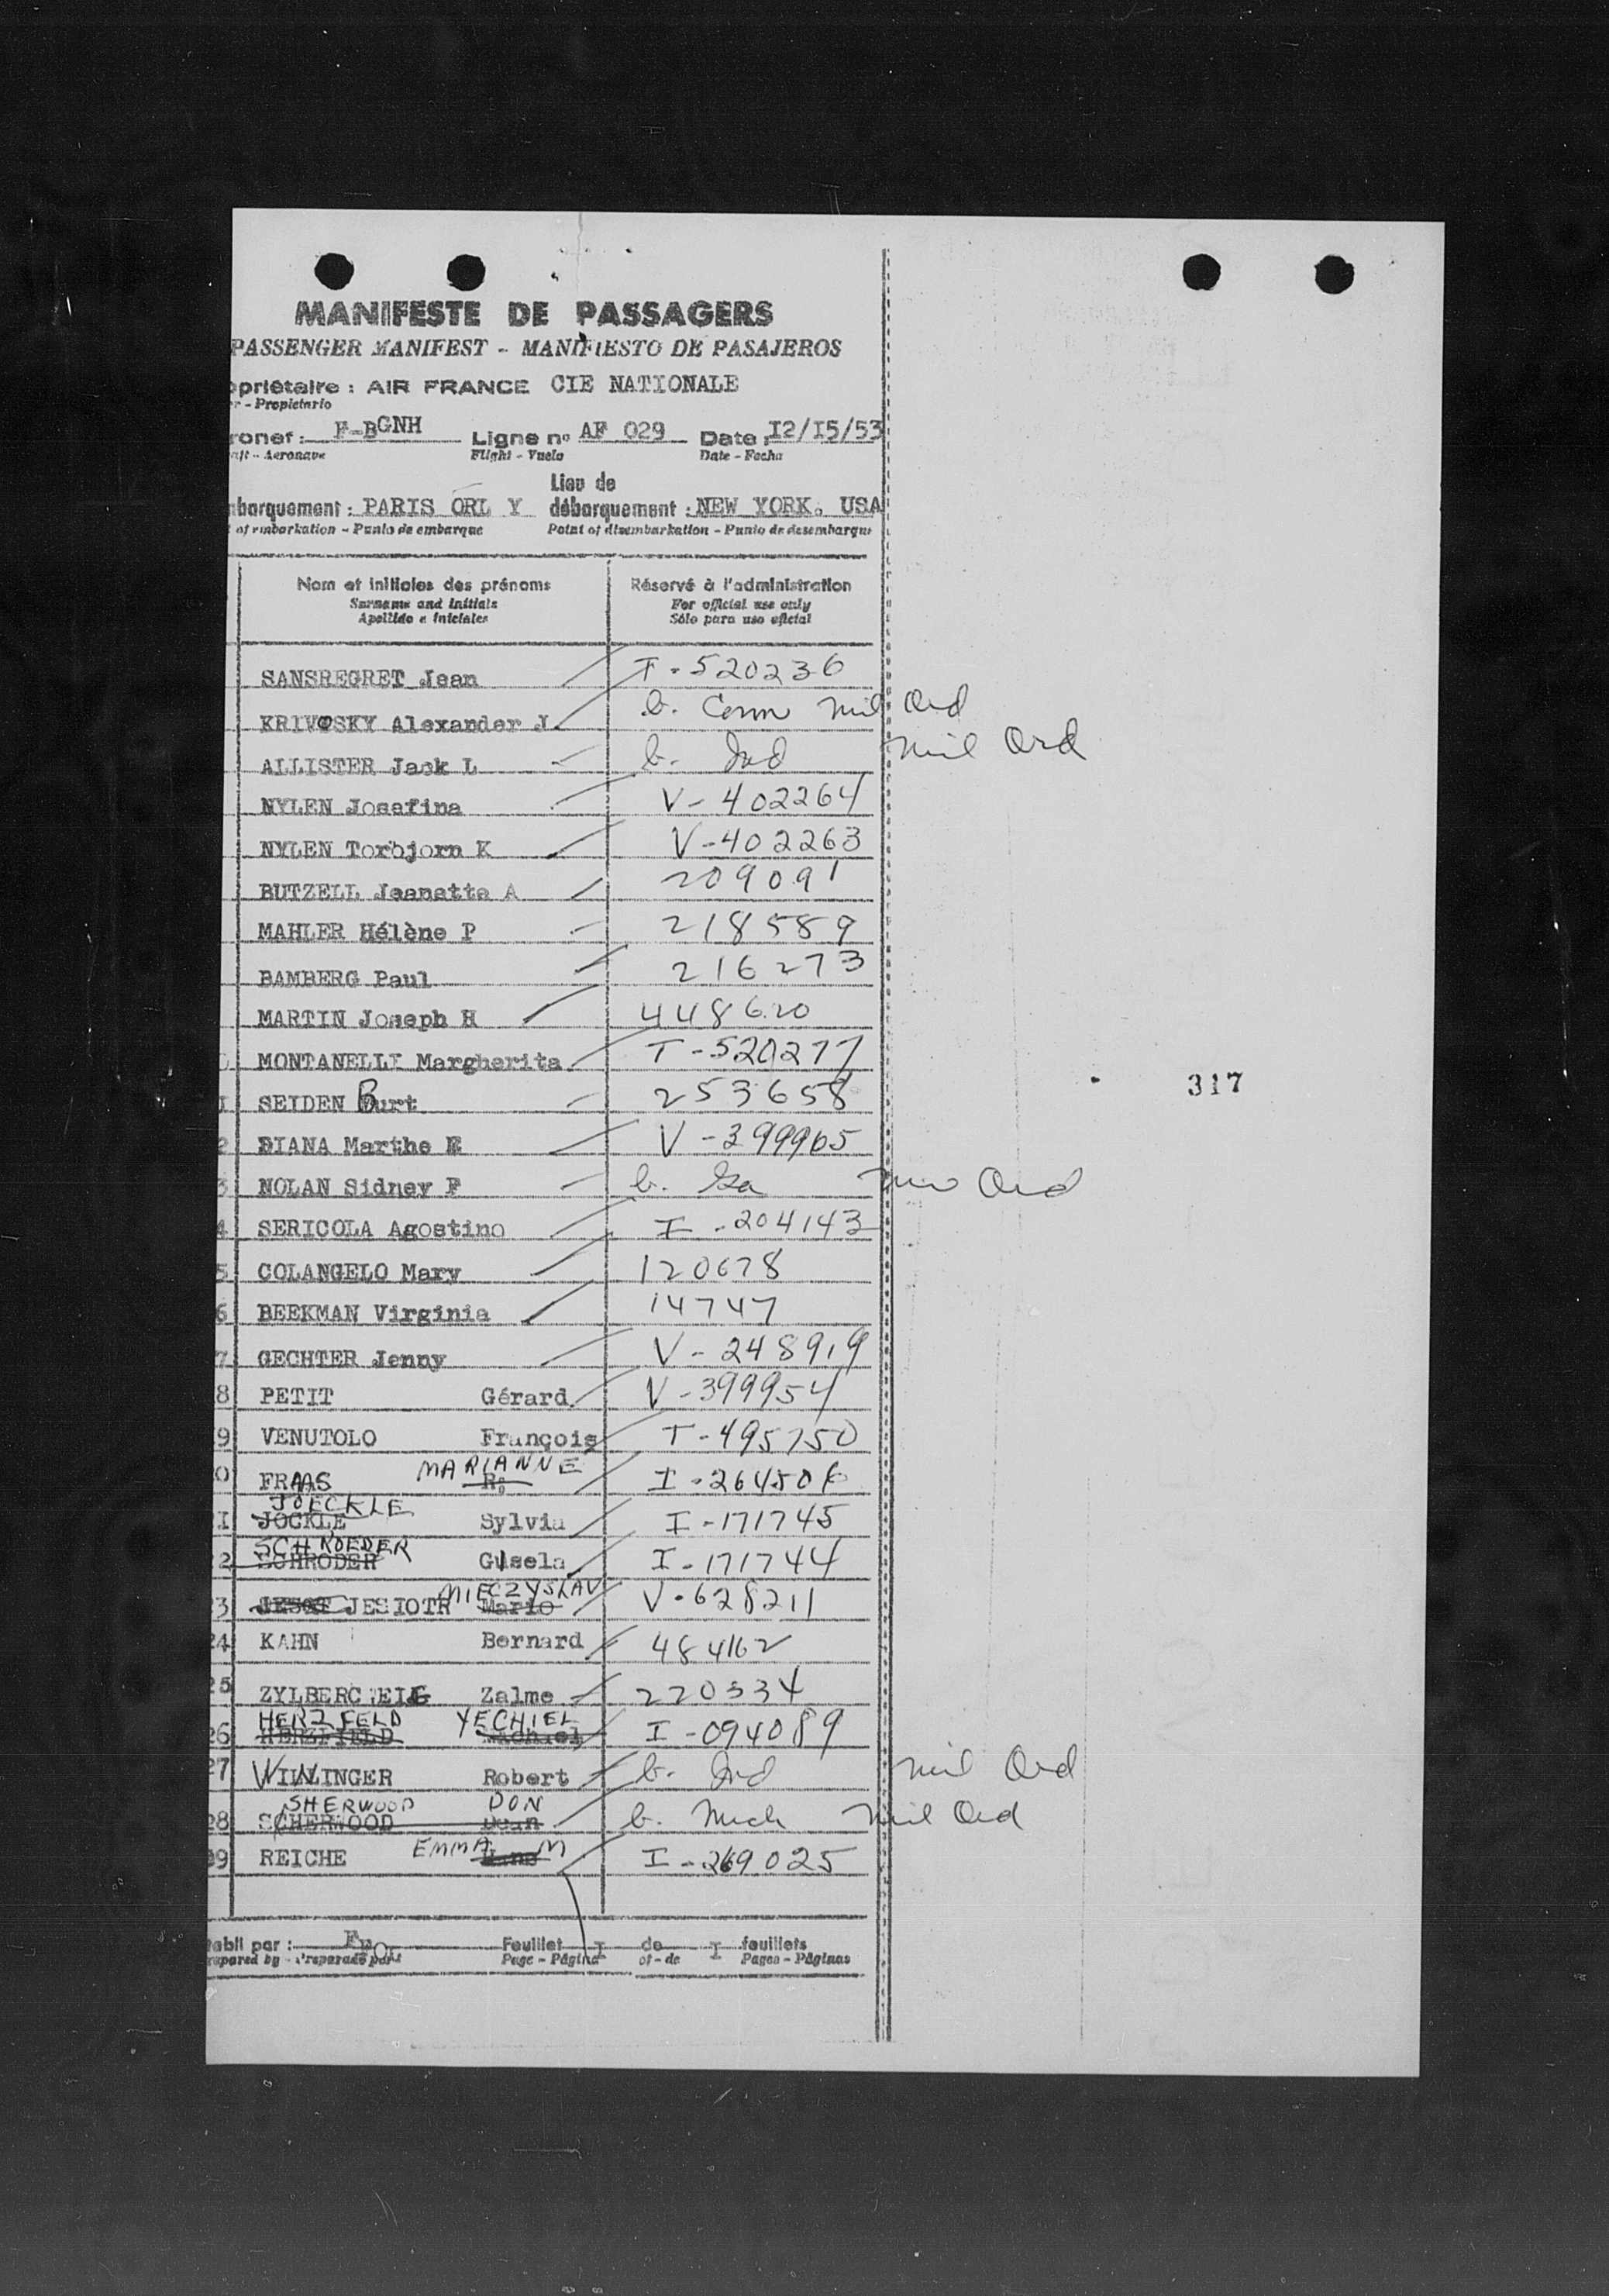 MANIFESTE DE PASSAGERS
PASSENGER MANIFEST - MANIFIESTO DE PASAJEROS
opriétaire : AIR FRANCE CIE NATIONALE
r - Propietario
ronef : F-BGNH Ligne no AF 029 Date : I2/I5/53
aft - Aeronave Flight - Vuelo Date - Fecha
Lieu de
nbarquement : PARIS ORL Y débarquement : NEW YORK. USA
t of embarkation - Punto de embarque Point of disembarkation - Punto de desembarque
Nom et initiales des prénoms Réservé à l'administration
Surname and initials For official use only
Apellido e iniciales Sólo para uso oficial
SANSREGRET Jean T-520236
KRIVOSKY Alexander J b. Conn mil Ord
ALLISTER Jack L b. Ind mil Ord
NYLEN Josefina V-402264
NYLEN Torbjorn K V-402263
BUTZELL Jeanette A 209091
MAHLER Hélène P 218589
BAMBERG Paul 216273
MARTIN Joseph H 448620
0 MONTANELLI Margherita T-520277
I SEIDEN Burt 253658
317
2 DIANA Marthe E V-399965
3 NOLAN Sidney F b. Ga Ord
4 SERICOLA Agostino I-204143
5 COLANGELO Mary 120678
6 BEEKMAN Virginia 14747
7 GECHTER Jenny V-248919
8 PETIT Gérard V-399954
9 VENUTOLO François T-495750
MARIANNE
0 FRAAS R. I-264506
JOECKLE
I JOCKLE Sylvia I-171745
SCHROEDER
2 SCHRODER Gisela I-171744
MIECZYSLAV
3 JESIOTR Mario V-628211
24 KAHN Bernard 484162
25 Zalme 220334
HERZFELD YECHIEL
26 HERZFIELD I-094089
27 WINLINGER Robert b. Ind mil Ord
SHERWOOD DON
28 SCHERWOOD Dean b. Mich mil Ord
EMMA M
29 REICHE I-269025
tabli par : Feuillet I de I feuillets
repared by - Preparado por Page - Página of - de Pages - Páginas